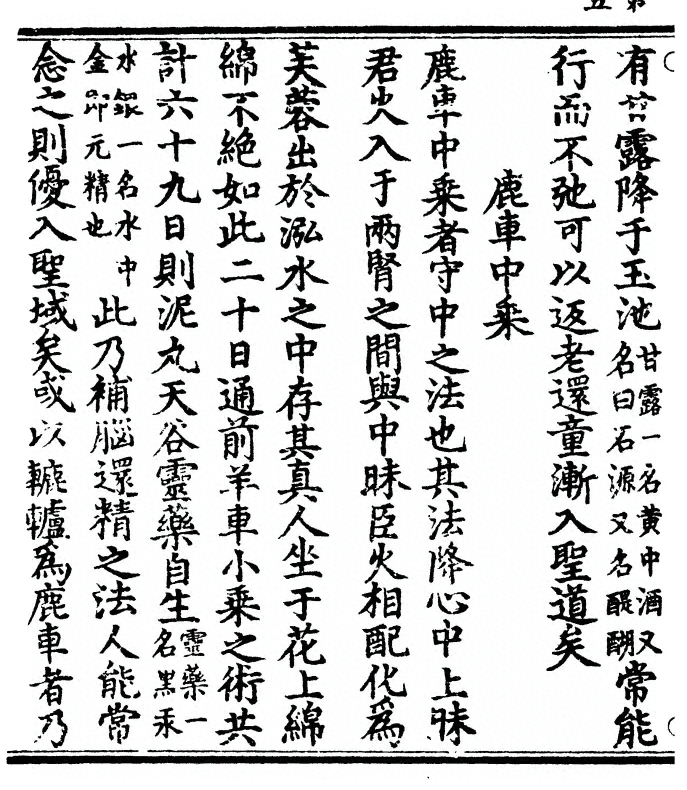 有甘露降于玉池甘露一名黄中酒又名曰石源又名醍醐常能
行而不弛可以返老還童漸入聖道矣
鹿車中乘
鹿車中乘者守中之法也其法降心中上昧
君火入于兩腎之間與中昧臣火相配化為
芙蓉出於泓水之中存其真人坐于花上綿
綿不絶如此二十日通前羊車小乘之術共
計六十九日則泥丸天谷靈藥自生靈藥一名黑汞
水銀一名水中金即元精也此乃補腦還精之法人能常
念之則優入聖域矣或以轆轤為鹿車者乃